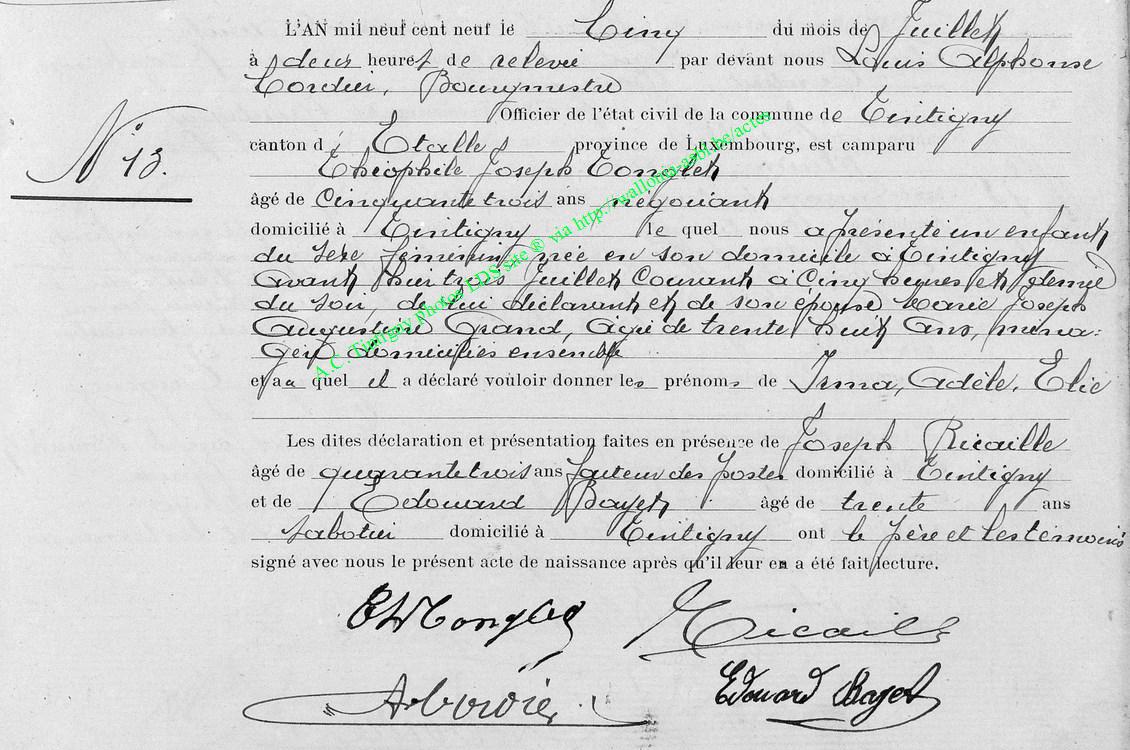 L'AN mil neuf cent neuf le Cinq du mois de Juillet
à deux heures de relevée par devant nous Louis Alphonse
Cordier, Bourgmestre
Officier de l'état civil de la commune de Tintigny
N° 13.
canton d' Etalle province de Luxembourg, est comparu
Théophile Joseph Tonglet
âgé de Cinquante trois ans négociant
domicilié à Tintigny le quel nous a présenté un enfant
du sexe féminin, née en son domicile à Tintigny
avant hier trois Juillet Courant à Cinq heures et demie
du soir, de lui déclarant et de son épouse Marie Joseph
Augustine Grand, agée de trente huit ans, ména=
gère domiciliés ensemble
et au quel il a déclaré vouloir donner les prénoms de Irma, Adèle, Elie
Les dites déclaration et présentation faites en présence de Joseph Ricaille
âgé de quarante trois ans facteur des postes domicilié à Tintigny
et de Edouard Bayet âgé de trente ans
sabotier domicilié à Tintigny ont le père et les témoins
signé avec nous le présent acte de naissance après qu'il leur en a été fait lecture.
Tonglet Ricaille
Edouard Bayet
A.C. Tintigny photos EDS site ® via http://igallonia-asbl.be/actes